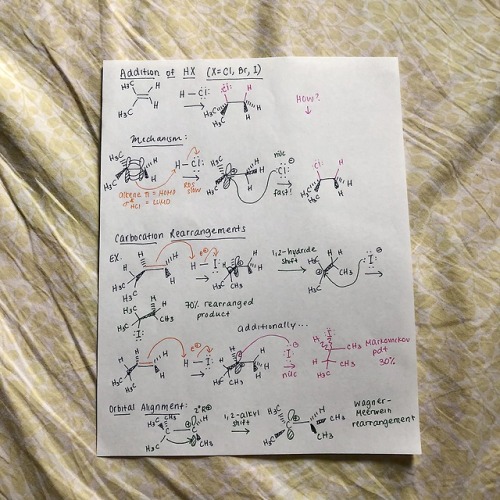 Addition of HX (X=Cl, Br, I)
H₃C H
H₃C H
H-Cl:
Cl: H
H₃C H
H₃C H
HOW?
Mechanism:
H₃C H
H₃C H
H-Cl:
alkene π = HOMO
σ* HCl = LUMO
RDS
slow
H₃C H
H₃C
nuc
:Cl:⊖
fast!
Cl: H
H₃C H
H₃C H
Carbocation Rearrangements
EX.
H H
H₃C H
H₃C
H-I:
H
H₃C
H₃C
1,2-hydride
shift
H₃C H
CH₃
H₃C
:I:⊖
H₃C H
H₃C CH₃
:I:
70% rearranged
product
additionally...
H H
H₃C H
H₃C
H-I:
H
H₃C
:I:⊖
nuc
:I:
H CH₃
H CH₃
H₃C
Markovnikov
pdt
30%
Orbital Alignment:
2° R⊕
H₃C CH₃ H
H₃C CH₃
1,2-alkyl
shift
H₃C H CH₃
H₃C CH₃
Wagner-
Meerwein
rearrangement